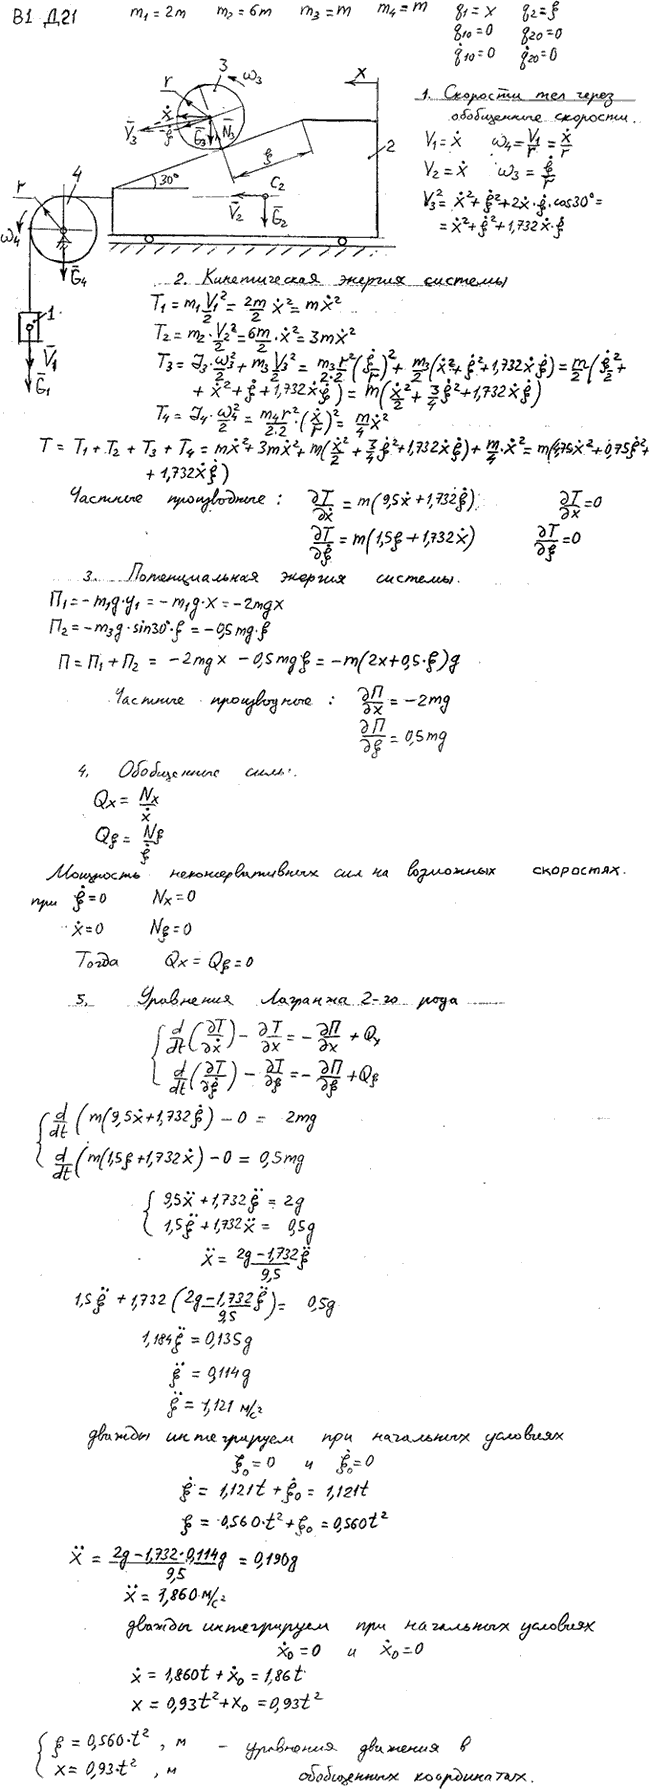 В1 Д21 m₁ = 2m m₂ = 6m m₃ = m m₄ = m q₁ = x q₂ = ξ
q₁₀ = 0 q₂₀ = 0
q̇₁₀ = 0 q̇₂₀ = 0
3 ω₃ r x
ẋ V̄₃ ξ̇ Ḡ₃ N̄₃
ξ 2
4 30° C₂
r V̄₂ Ḡ₂
ω₄ Ḡ₄
1
V̄₁
Ḡ₁
1. Скорости тел через
обобщенные скорости.
V₁ = ẋ ω₄ = V₁/r = ẋ/r
V₂ = ẋ ω₃ = ξ̇/r
V₃² = ẋ² + ξ̇² + 2ẋ·ξ̇·cos30° =
= ẋ² + ξ̇² + 1,732ẋ·ξ̇
2. Кинетическая энергия системы
T₁ = m₁V₁²/2 = 2m/2 ẋ² = mẋ²
T₂ = m₂·V₂²/2 = 6m/2·ẋ² = 3mẋ²
T₃ = J₃·ω₃²/2 + m₃V₃²/2 = m₃r²/2·2 (ξ̇/r)² + m₃/2(ẋ² + ξ̇² + 1,732ẋξ̇) = m/2(ξ̇²/2 +
+ ẋ² + ξ̇ + 1,732ẋξ̇) = m(ẋ²/2 + 3/4ξ̇² + 1,732ẋξ̇)
T₄ = J₄·ω₄²/2 = m₄r²/2·2·(ẋ/r)² = m/4ẋ²
T = T₁ + T₂ + T₃ + T₄ = mẋ² + 3mẋ² + m(ẋ²/2 + 3/4ξ̇² + 1,732ẋξ̇) + m/4·ẋ² = m(4,75ẋ² + 0,75ξ̇² +
+ 1,732ẋξ̇)
Частные производные : ∂T/∂ẋ = m(9,5ẋ + 1,732ξ̇) ∂T/∂x = 0
∂T/∂ξ̇ = m(1,5ξ + 1,732ẋ) ∂T/∂ξ = 0
3. Потенциальная энергия системы.
П₁ = −m₁g·y₁ = −m₁g·x = −2mgx
П₂ = −m₃g·sin30°·ξ = −0,5mg·ξ
П = П₁ + П₂ = −2mgx − 0,5mgξ = −m(2x + 0,5·ξ)g
Частные производные : ∂П/∂x = −2mg
∂П/∂ξ = 0,5mg
4. Обобщенные силы.
Qx = Nx/ẋ
Qξ = Nξ/ξ̇
Мощность неконсервативных сил на возможных скоростях.
при ξ̇ = 0 Nx = 0
ẋ = 0 Nξ = 0
Тогда Qx = Qξ = 0
5. Уравнения Лагранжа 2-го рода
d/dt(∂T/∂ẋ) − ∂T/∂x = −∂П/∂x + Qx
d/dt(∂T/∂ξ̇) − ∂T/∂ξ = −∂П/∂ξ + Qξ
d/dt(m(9,5ẋ + 1,732ξ̇) − 0 = 2mg
d/dt(m(1,5ξ + 1,732ẋ) − 0 = 0,5mg
9,5ẍ + 1,732ξ̈ = 2g
1,5ξ̈ + 1,732ẍ = 0,5g
ẍ = 2g − 1,732ξ̈/9,5
1,5ξ̈ + 1,732(2g − 1,732ξ̈/9,5) = 0,5g
1,184ξ̈ = 0,135g
ξ̈ = 0,114g
ξ̈ = 1,121 м/с²
дважды интегрируем при начальных условиях
ξ₀ = 0 и ξ̇₀ = 0
ξ̇ = 1,121t + ξ̇₀ = 1,121t
ξ = 0,560·t² + ξ₀ = 0,560t²
ẍ = 2g − 1,732·0,114g/9,5 = 0,190g
ẍ = 1,860 м/с²
дважды интегрируем при начальных условиях
ẋ₀ = 0 и ẋ₀ = 0
ẋ = 1,860t + ẋ₀ = 1,86t
x = 0,93t² + x₀ = 0,93t²
ξ = 0,560·t² , м – уравнения движения в
x = 0,93·t² , м обобщенных координатах.